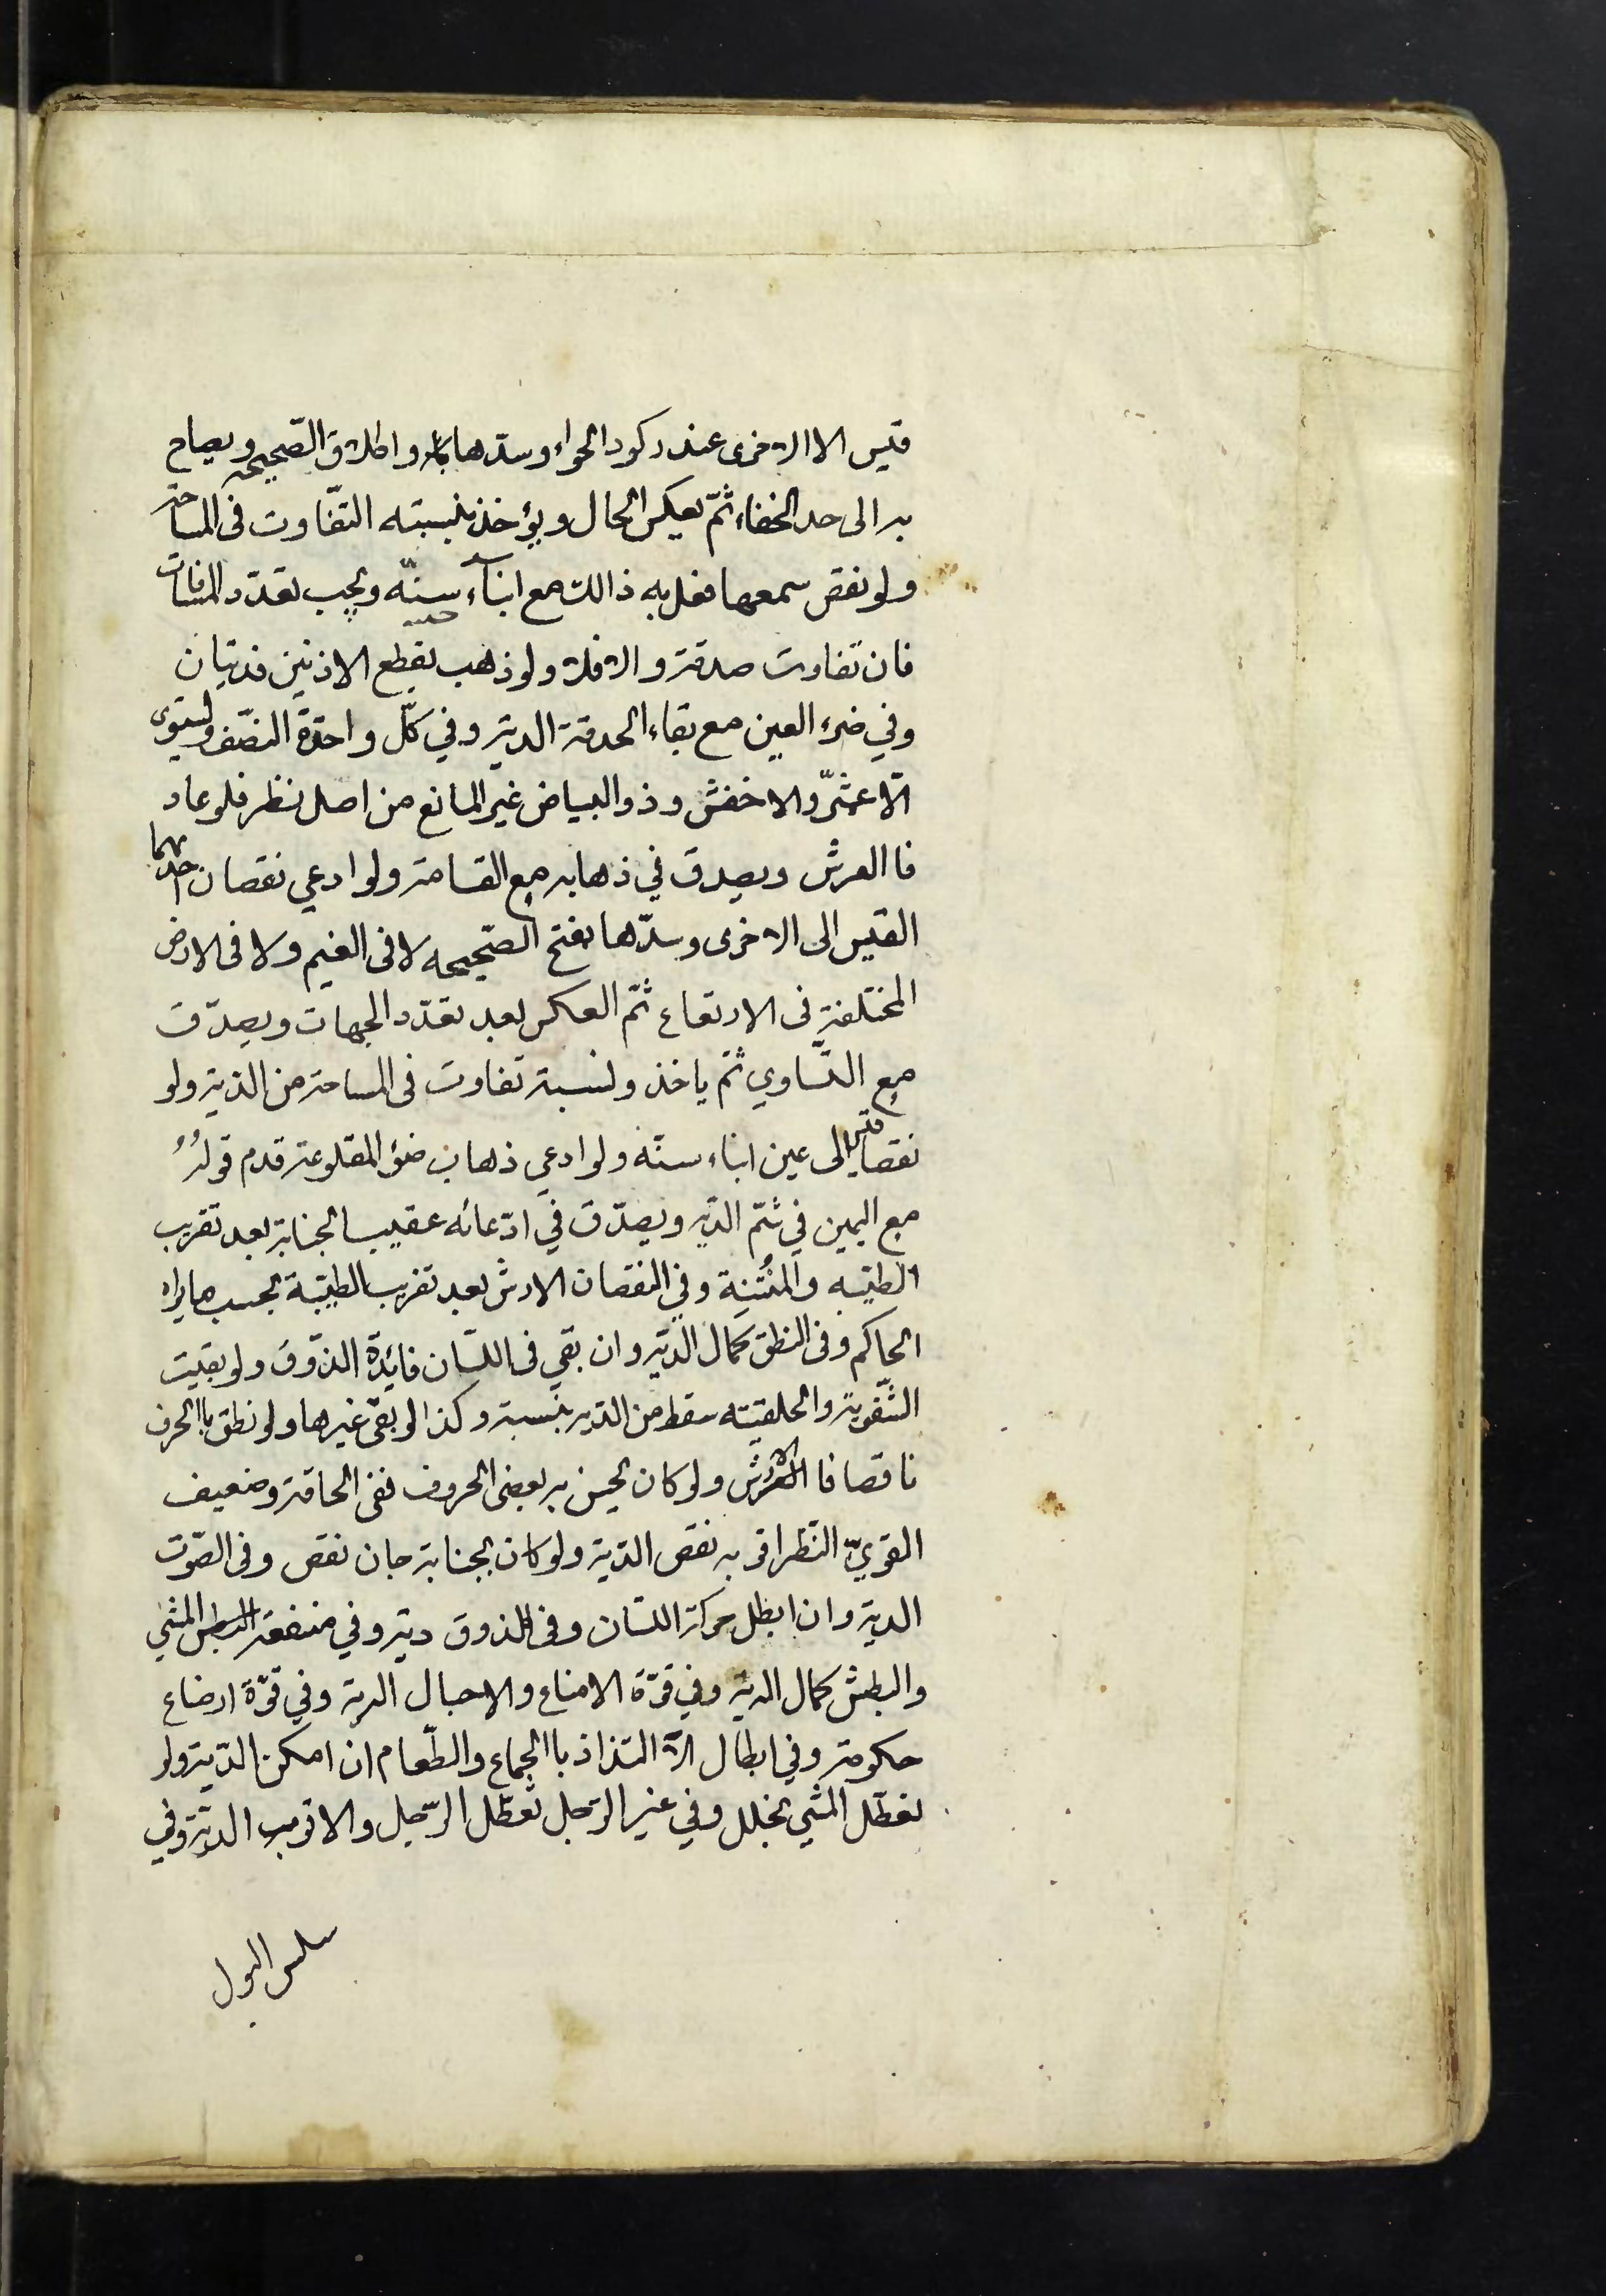 قيس الا الاخرى عند ركود الهواء وسدها واطلاق الصّحيحه ويصاح
به الى حد الخفاء ثمّ يعكس الحال ويؤخذ بنسبته التفّاوت فى المساحة
ولو نقص سمعها فعل به ذالك مع ابناء سنّه ويجب تعدّد المسافات
فان تفاوت صدقة والا فلا ولو ذهب بقطع الاذنين فديتان
وفي ضوء العين مع بقاء الحدقة الدية وفي كلّ واحدة النصّف وليستوى
الاعمش والاخفش وذو البياض غير المانع من اصل نظر فلو عاد
فا العرش ويصدق في ذهابه مع القسامة ولو ادعي نقصان احديهما
القيس الى الاخرى وسدّها بفتح الصّحيحه لا فى الغيم ولا فى الارض
المختلفة فى الارتفاع ثمّ العكس بعد تعدّد الجهات ويصدّق
مع التّساوي ثمّ ياخذ ولنسبة تفاوت فى المساحة من الدية ولو
نقصا قيس الى عين ابناء سنّه ولو ادعي ذهاب ضوء المقلوعة قدم قوله
مع اليمين في شمّ الدّيه ويصدّق في ادّعائه عقيب الجناية بعد تقريب
الطيّبه والمنُتنة وفي النقصان الارش بعد تقريب الطيّبة بحسب ما يراه
الحاكم وفى النطق كمال الدّية وان بقي فى اللسّان فائدة الذّوق ولو بقيت
الشّفوية والحلقيته سقط من الديه بنسبة وكذا لو بقى غيرها ولو نطق با الحرف
ناقصا فا الارش ولو كان يحسن به بعض الحروف ففى الحاقة وضعيف
القويّ النّظر اقربه نقص الدّية ولو كان بجناية جان نقص وفى الصّوت
الدية وان ابطل حركة اللسّان وفى الذوق دية وفي منفعة المشي
والبطش كمال الدية وفي قوّة الامناء والاحبال الدية وفي قوّة ارضاع
حكومة وفي ابطال الا التذاذ با الجماع والطّعام ان امكن الدّية ولو
تعطّل المشي بخلل وفي غير الرّجل تعطّل الرّجل والاقرب الديّة وفي
سلس البول